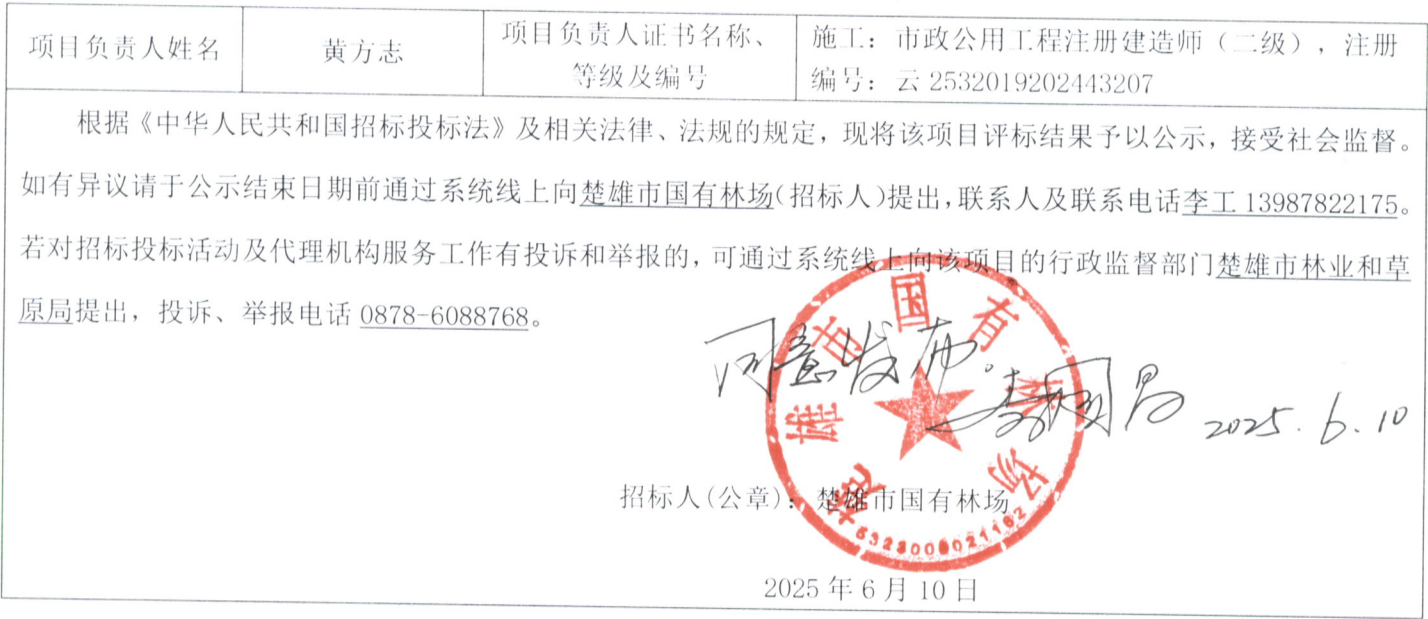 项目负责人姓名 黄方志 项目负责人证书名称、等级及编号 施工：市政公用工程注册建造师（二级），注册编号：云 2532019202443207
根据《中华人民共和国招标投标法》及相关法律、法规的规定，现将该项目评标结果予以公示，接受社会监督。
如有异议请于公示结束日期前通过系统线上向楚雄市国有林场(招标人)提出，联系人及联系电话李工 13987822175。
若对招标投标活动及代理机构服务工作有投诉和举报的，可通过系统线上向该项目的行政监督部门楚雄市林业和草
原局提出，投诉、举报电话 0878-6088768。
同意发布。
2025.6.10
楚雄市国有林场
招标人(公章)：楚雄市国有林场
2025 年 6 月 10 日